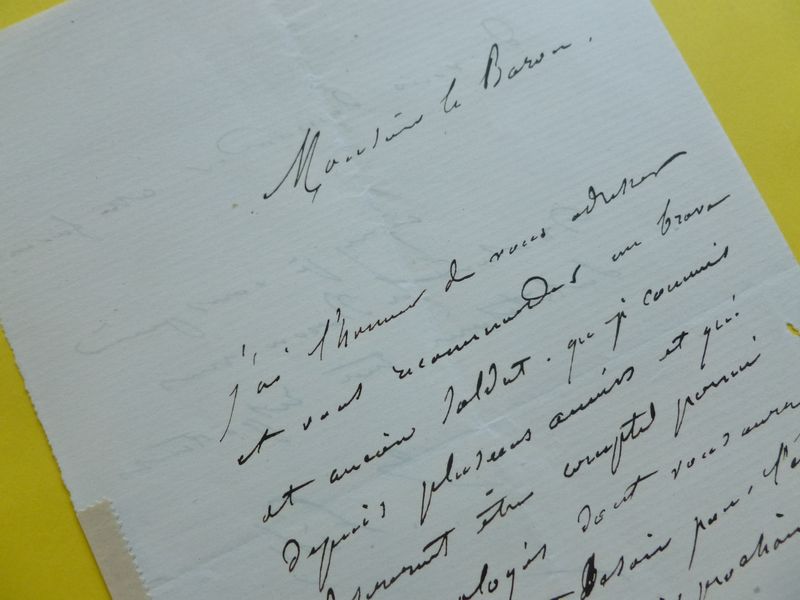 Monsieur le Baron.
j'ai l'honneur de vous adresser
et vous recommander un brave
et ancien soldat. que je connais
depuis plusieurs années et qui
être compté parmi
dont vous aurez
besoin pour l'é
prochain